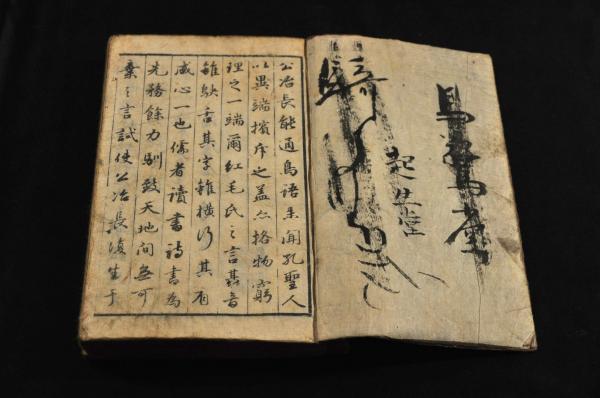 起生堂
公冶長能通鳥語未聞孔聖人
以異端擯斥之蓋亦格物窮
理之一端爾紅毛氏之言其音
雖鴃舌其字雖橫行其有
感心一也儒者讀書詩書為
先務餘力馴致天地間無可
棄之言試使公冶長復生于